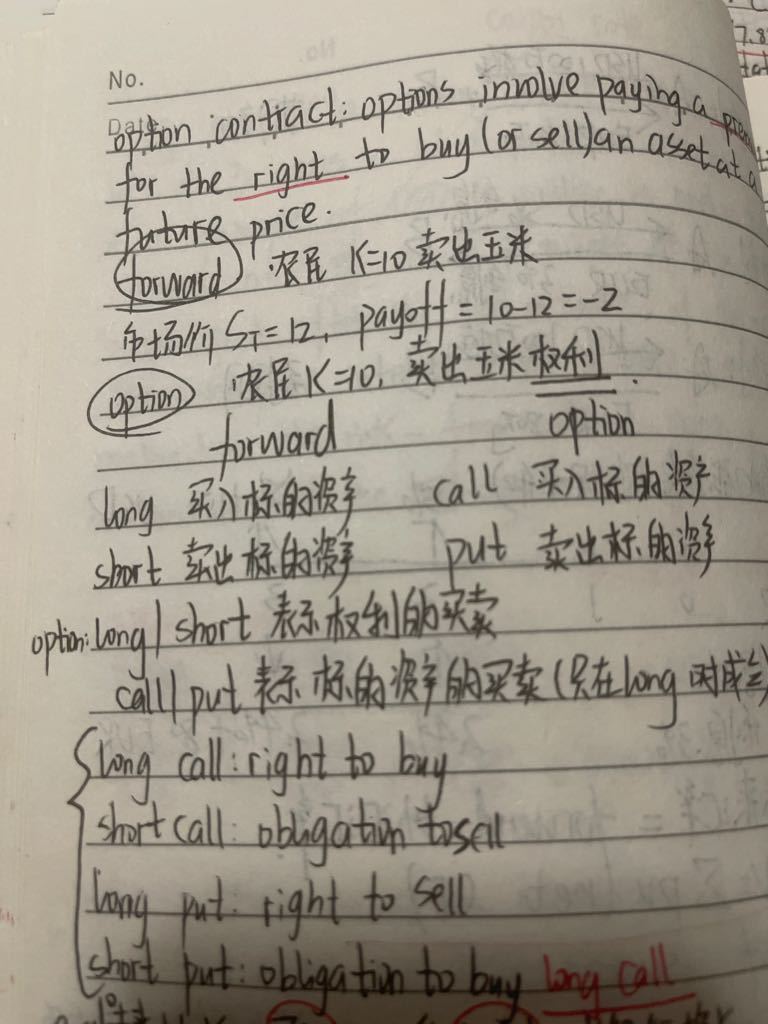 No.
Date
option contract: options involve paying a
for the right to buy (or sell) an asset at a
future price.
forward 农民 K=10 卖出玉米
市场价 ST=12, payoff = 10-12=-2
option 农民 K=10, 卖出玉米权利.
forward option
long 买入标的资产 call 买入标的资产
short 卖出标的资产 put 卖出标的资产
option: long/short 表示权利的买卖
call/put 表示标的资产的买卖(只在long时成立)
long call: right to buy
short call: obligation to sell
long put: right to sell
short put: obligation to buy long call